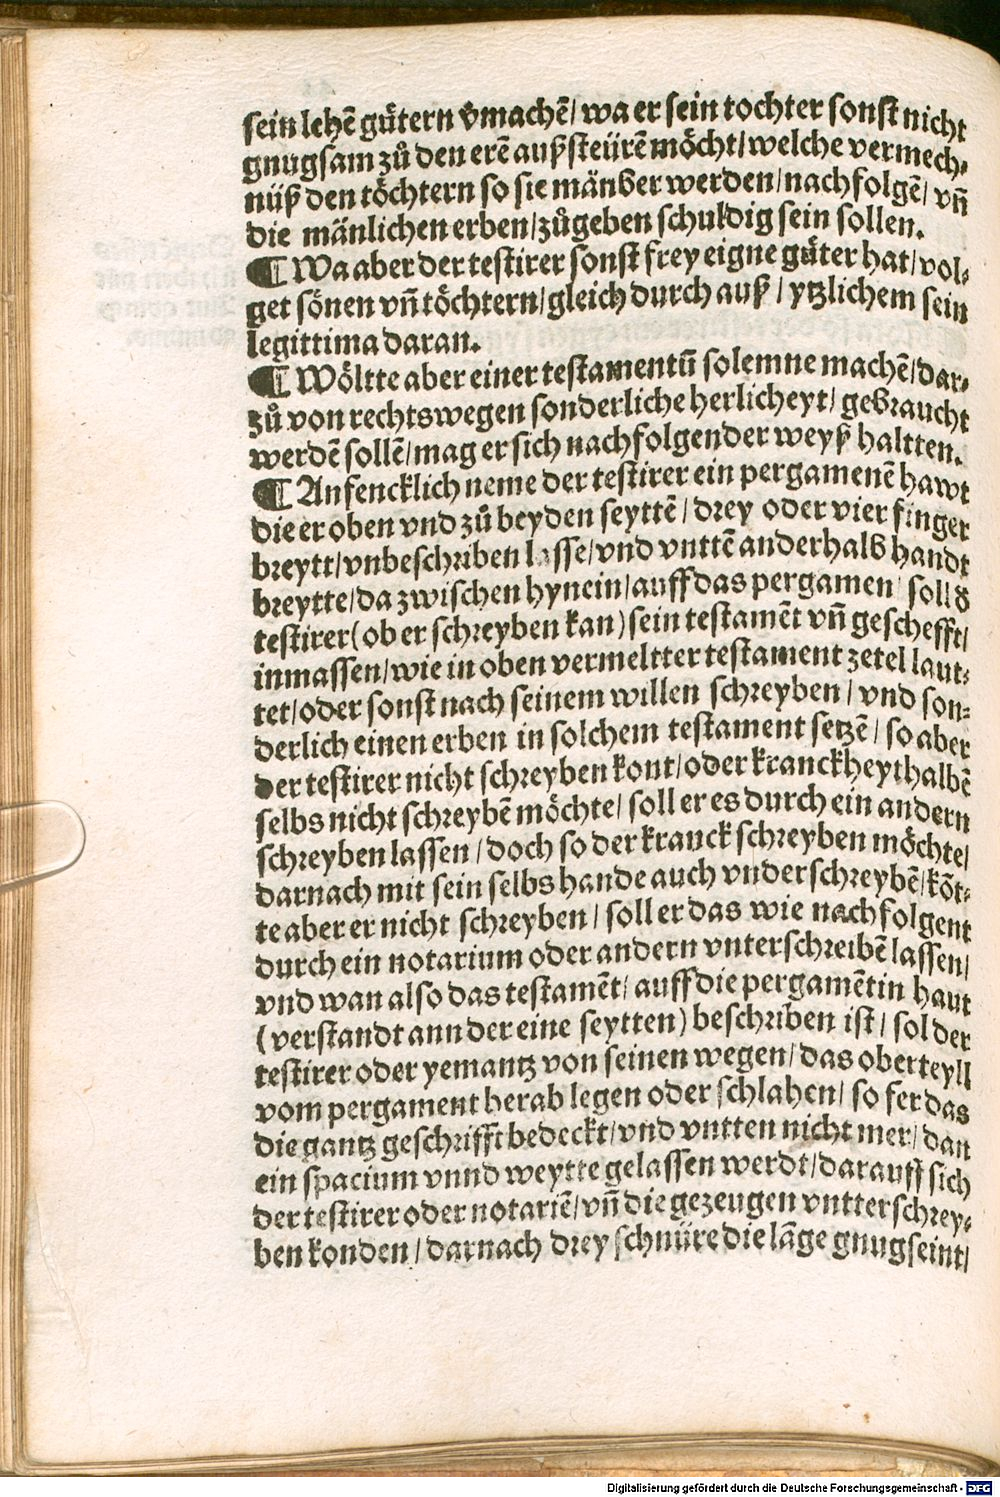 sein lehẽ gütern v̄machẽ / wa er sein tochter sonst nicht
gnugsam zů den erẽ außsteürẽ möcht / welche vermech⸗
nüß den töchtern so sie mänber werden / nachfolgẽ / vñ
die mänlichen erben / zůgeben schuldig sein sollen.
¶ Wa aber der testirer sonst frey eigne güter hat / vol⸗
get sönen vñ töchtern / gleich durch auß / ytzlichem sein
legittima daran.
¶ Wöltte aber einer testamentũ solemne machẽ / dar⸗
zů von rechtswegen sonderliche herlicheyt / gebraucht
werdẽ sollẽ / mag er sich nachfolgender weyß haltten.
¶ Anfencklich neme der testirer ein pergamenẽ hawt
die er oben vnd zů beyden seyttẽ / drey oder vier finger
breytt / vnbeschriben lasse / vnd vnttẽ anderhalb handt
breytte / da zwischen hynein / auff das pergamen soll d̕
testirer (ob er schreyben kan) sein testamẽt vñ geschefft /
inmassen / wie in oben vermeltter testament zetel laut⸗
tet / oder sonst nach seinem willen schreyben / vnd son⸗
derlich einen erben in solchem testament setzẽ / so aber
der testirer nicht schreyben kont / oder kranckheyt halbẽ
selbs nicht schreybẽ möchte / soll er es durch ein andern
schreyben lassen / doch so der kranck schreyben möchte /
darnach mit sein selbs hande auch vnderschreybẽ / kõt⸗
te aber er nicht schreyben / soll er das wie nachfolgent
durch ein notarium oder andern vnterschreibẽ lassen /
vnd wan also das testamẽt / auff die pergamẽtin haut
(verstandt ann der eine seytten) beschriben ist / sol der
testirer oder yemantz von seinen wegen / das oberteyll
vom pergament herab legen oder schlahen / so fer das
die gantz geschrifft bedeckt / vnd vntten nicht mer / dan
ein spacium vnnd weytte gelassen werdt / darauff sich
der testirer oder notariẽ / vñ die gezeugen vntterschrey⸗
ben konden / darnach drey schnüre die lãge gnug seint /
Digitalisierung gefördert durch die Deutsche Forschungsgemeinschaft - DFG